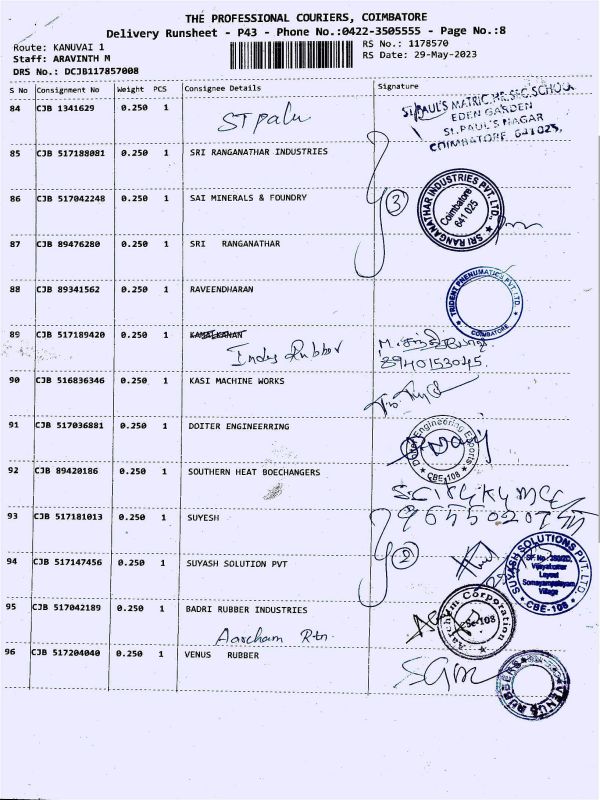 THE PROFESSIONAL COURIERS, COIMBATORE
Delivery Runsheet - P43 - Phone No.:0422-3505555 - Page No.:8
Route: KANUVAI 1
RS No.: 1178570
Staff: ARAVINTH M
RS Date: 29-May-2023
DRS No.: DCJB117857008
S No Consignment No Weight PCS Consignee Details Signature
84 CJB 1341629 0.250 1 ST palu
ST.PAUL'S MATRIC.HR.SEC.SCHOOL
EDEN GARDEN
ST.PAUL'S NAGAR
COIMBATORE 641 025,
85 CJB 517188081 0.250 1 SRI RANGANATHAR INDUSTRIES
86 CJB 517042248 0.250 1 SAI MINERALS & FOUNDRY
3
SRI RANGANATHAR INDUSTRIES PVT. LTD.
Coimbatore
641 025
87 CJB 89476280 0.250 1 SRI RANGANATHAR
88 CJB 89341562 0.250 1 RAVEENDHARAN
TRIDENT PNEUMATICS PVT. LTD.
COIMBATORE
89 CJB 517189420 0.250 1 KAMALKANAN
Indus Rubber
8940153045.
90 CJB 516836346 0.250 1 KASI MACHINE WORKS
91 CJB 517036881 0.250 1 DOITER ENGINEERRING
Doiter Engineering Exports
CBE-108
92 CJB 89420186 0.250 1 SOUTHERN HEAT BOECHANGERS
93 CJB 517181013 0.250 1 SUYESH
94 CJB 517147456 0.250 1 SUYASH SOLUTION PVT
2
SUYASH SOLUTIONS PVT. LTD.
Vijayakumar
Layout
Somayampalayam
Village
CBE-108
95 CJB 517042189 0.250 1 BADRI RUBBER INDUSTRIES
Aarcham Rtn
Aarcham Corporation
96 CJB 517204040 0.250 1 VENUS RUBBER
VENUS RUBBERS